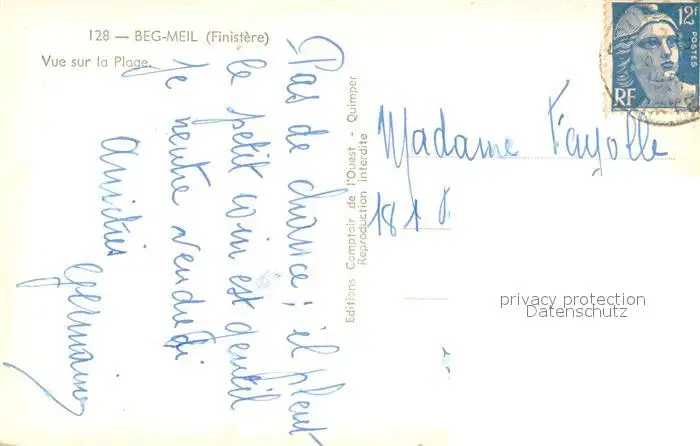 128 — BEG-MEIL (Finistère)
Vue sur la Plage.
Pas de chance ; il pleut
le petit coin est gentil
Je rentre vendredi
Amitiés
Germaine
Editions Comptoir de l'Ouest - Quimper
Reproduction interdite
12F
POSTES
RF
Madame Fayolle
181
privacy protection
Datenschutz